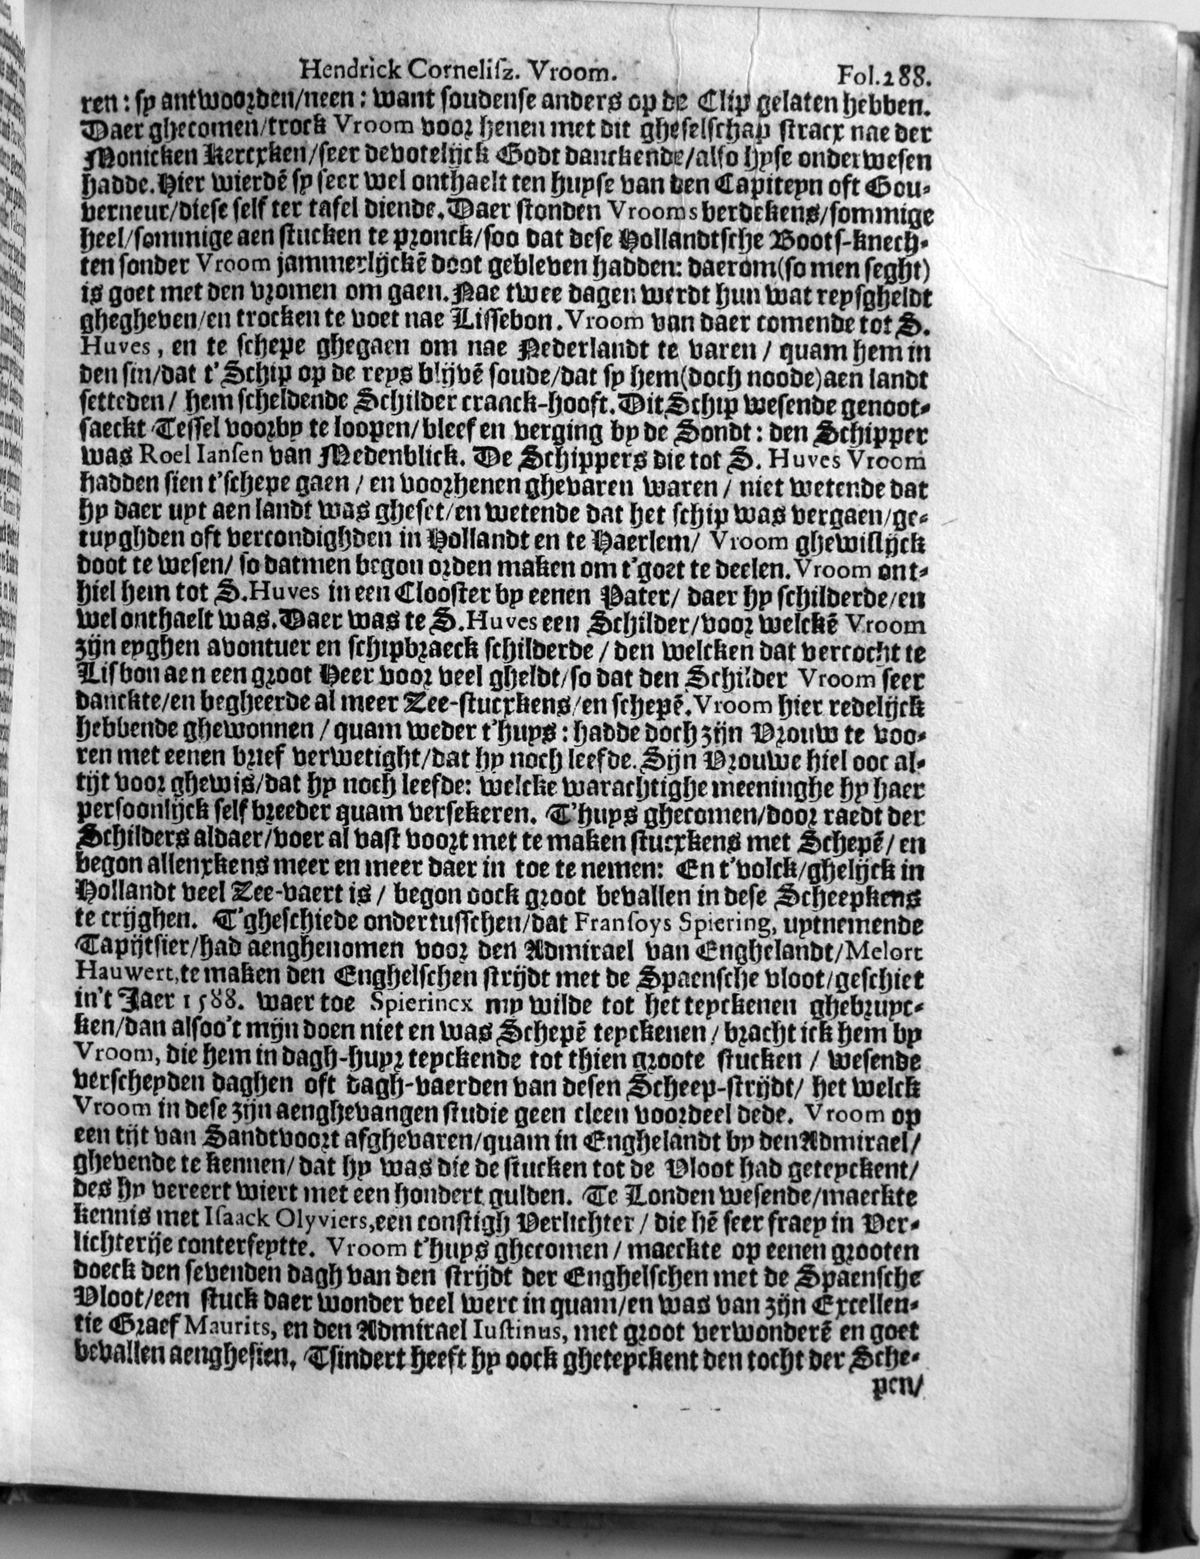 Hendrick Cornelisz. Vroom. Fol.288.
ren: sy antwoorden/neen: want soudense anders op de Clip gelaten hebben.
Daer ghecomen/trock Vroom voor henen met dit gheselschap stracx nae der
Monicken Kercxken/seer devotelijck Godt danckende/also hyse onderwesen
hadde. Hier wierdē sy seer wel onthaelt ten huyse van den Capiteyn oft Gou-
verneur/diese self ter tafel diende. Daer stonden Vrooms berdekens/sommige
heel/sommige aen stucken te pronck/soo dat dese Hollandtsche Boots-knech-
ten sonder Vroom jammerlijckē doot gebleven hadden: daerom(so men seght)
is goet met den vromen om gaen. Nae twee dagen werdt hun wat reysgheldt
ghegheven/en trocken te voet nae Lissebon. Vroom van daer comende tot S.
Huves, en te schepe ghegaen om nae Nederlandt te varen/ quam hem in
den sin/dat t'Schip op de reys blijvē soude/dat sy hem(doch noode)aen landt
setteden/ hem scheldende Schilder cranck-hooft. Dit Schip wesende genoot-
saeckt Tessel voorby te loopen/bleef en verging by de Sondt: den Schipper
was Roel Iansen van Medenblick. De Schippers die tot S. Huves Vroom
hadden sien t'schepe gaen/ en voorhenen ghevaren waren/ niet wetende dat
hy daer uyt aen landt was gheset/en wetende dat het schip was vergaen/ge-
tuyghden oft vercondighden in Hollandt en te Haerlem/ Vroom ghewislijck
doot te wesen/ so datmen begon orden maken om t'goet te deelen. Vroom ont-
hiel hem tot S.Huves in een Clooster by eenen Pater/ daer hy schilderde/en
wel onthaelt was. Daer was te S.Huves een Schilder/voor welckē Vroom
zijn eyghen avontuer en schipbraeck schilderde/ den welcken dat vercocht te
Lisbon aen een groot Heer voor veel gheldt/so dat den Schilder Vroom seer
danckte/en begheerde al meer Zee-stucxkens/en schepē. Vroom hier redelijck
hebbende ghewonnen/ quam weder t'huys: hadde doch zijn Vrouw te voo-
ren met eenen brief verwetight/dat hy noch leefde. Sijn Vrouwe hiel ooc al-
tijt voor ghewis/dat hy noch leefde: welcke warachtighe meeninghe hy haer
persoonlijck self breeder quam versekeren. T'huys ghecomen/door raedt der
Schilders aldaer/voer al vast voort met te maken stucxkens met Schepē/ en
begon allenxkens meer en meer daer in toe te nemen: En t'volck/ghelijck in
Hollandt veel Zee-vaert is/ begon oock groot bevallen in dese Scheepkens
te crijghen. T'gheschiede ondertusschen/dat Fransoys Spiering, uytnemende
Tapijtsier/had aenghenomen voor den Admirael van Enghelandt/Melort
Hauwert, te maken den Enghelschen strijdt met de Spaensche vloot/geschiet
in't Jaer 1588. waer toe Spierincx my wilde tot het teyckenen ghebruyc-
ken/dan alsoo't mijn doen niet en was Schepē teyckenen/ bracht ick hem by
Vroom, die hem in dagh-huyr teyckende tot thien groote stucken/ wesende
verscheyden daghen oft dagh-vaerden van desen Scheep-strijdt/ het welck
Vroom in dese zijn aenghevangen studie geen cleen voordeel dede. Vroom op
een tijt van Sandtvoort afghevaren/quam in Enghelandt by den Admirael/
ghevende te kennen/ dat hy was die de stucken tot de Vloot had geteyckent/
des hy vereert wiert met een hondert gulden. Te Londen wesende/maeckte
kennis met Isaack Olyviers, een constigh Verlichter/ die hē seer fraey in Ver-
lichterije conterfeytte. Vroom t'huys ghecomen/ maeckte op eenen grooten
doeck den sevenden dagh van den strijdt der Enghelschen met de Spaensche
Vloot/een stuck daer wonder veel werc in quam/en was van zijn Excellen-
tie Graef Maurits, en den Admirael Iustinus, met groot verwonderē en goet
bevallen aenghesien. Tsindert heeft hy oock gheteyckent den tocht der Sche-
pen/